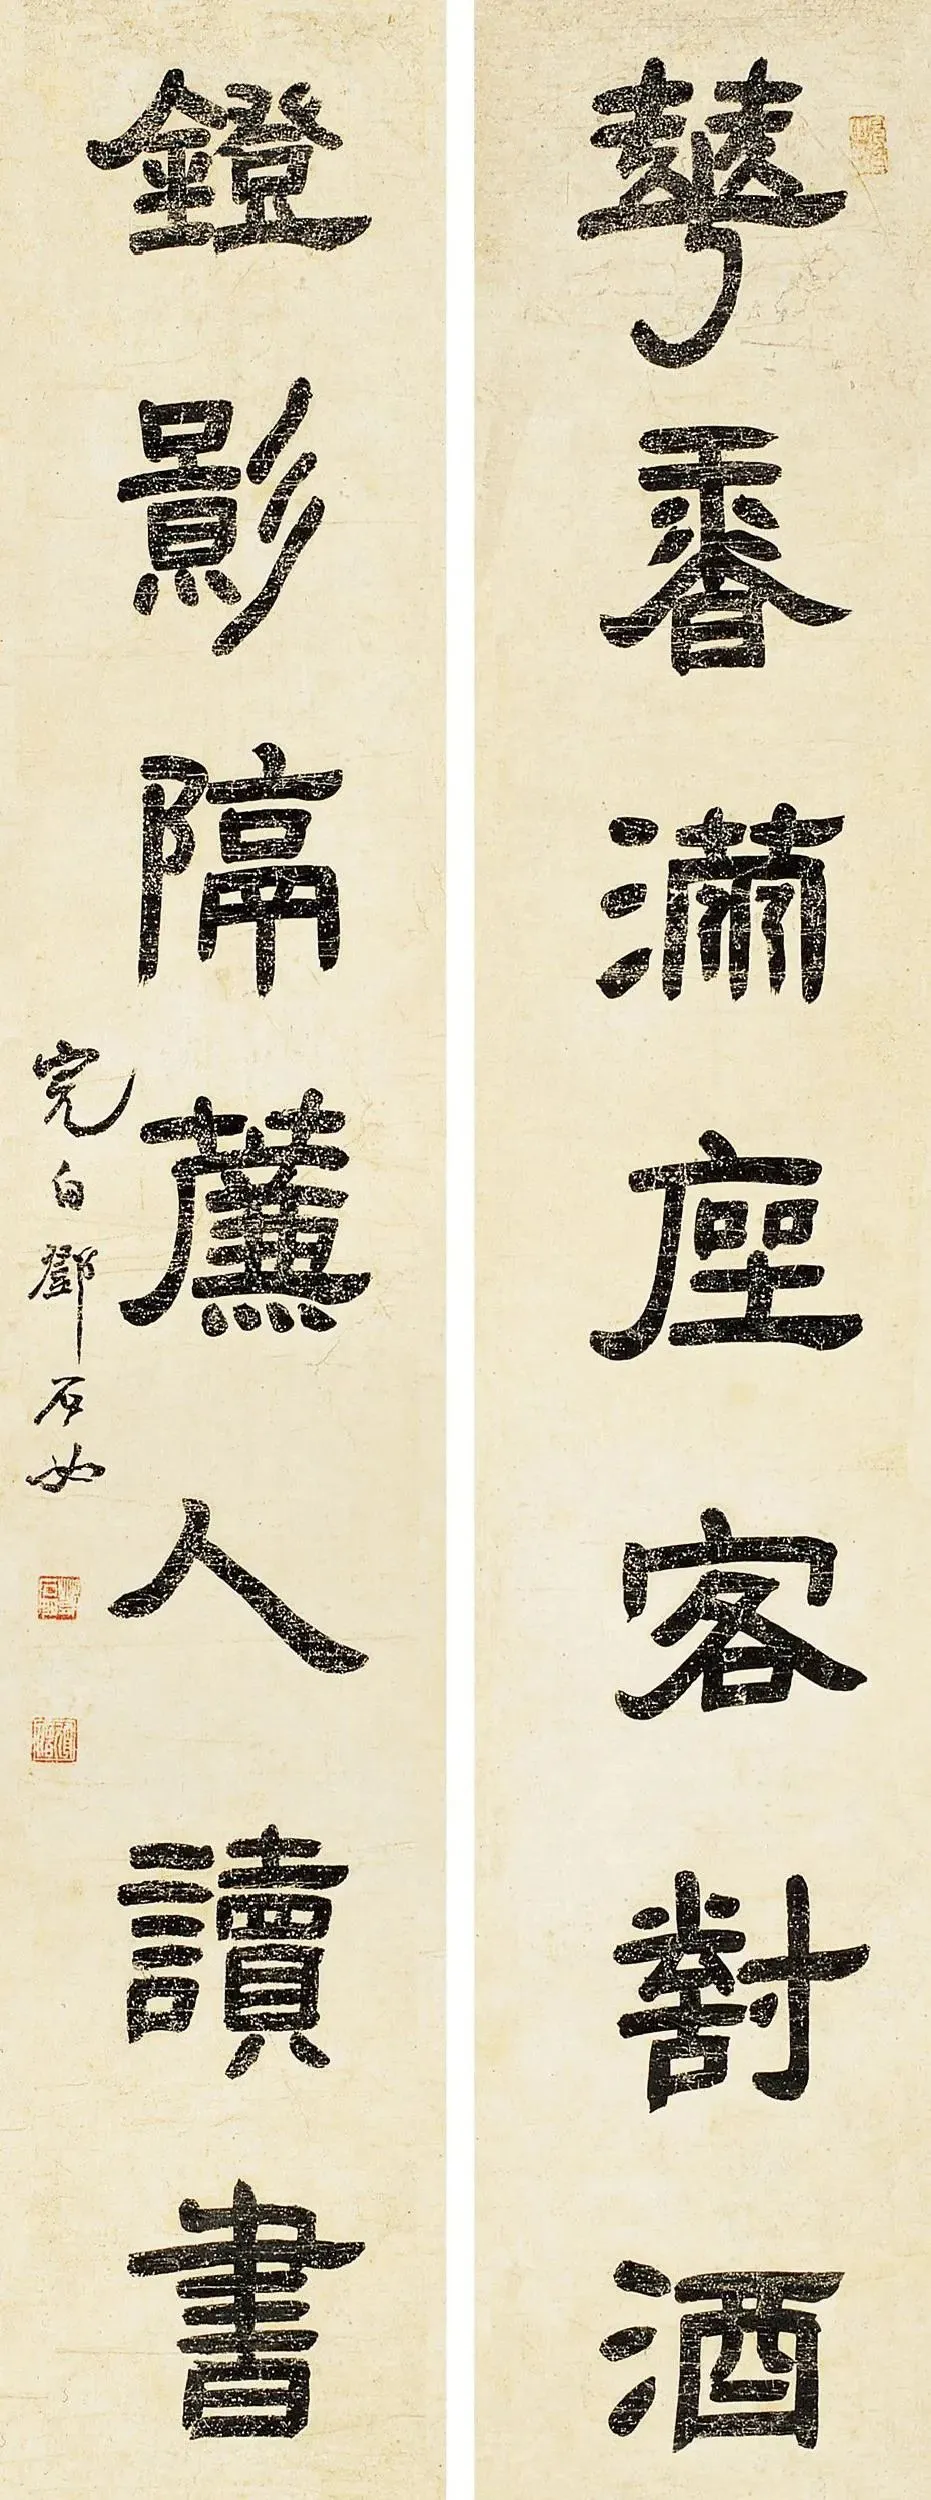 華香滿座客對酒
鐙影隔簾人讀書
完白鄧石如